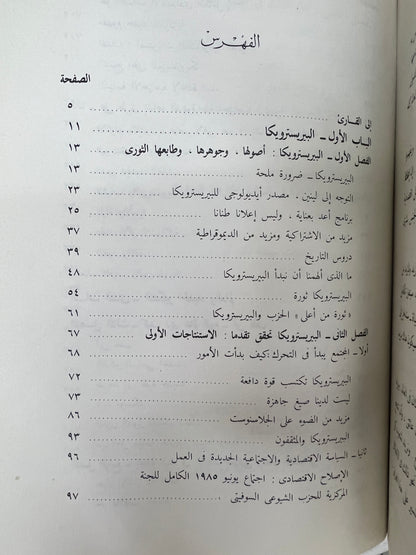 الفهرس
الصفحة
إلى القارئ ٥
الباب الأول ــ البيريسترويكا ١١
الفصل الأول ــ البيريسترويكا : أصولها ، وجوهرها ، وطابعها الثورى ١٣
البيريسترويكا ــ ضرورة ملحة ١٣
التوجه إلى لينين ، مصدر أيديولوجى للبيريسترويكا ٢٣
برنامج أعد بعناية ، وليس إعلانا طنانا ٢٥
مزيد من الاشتراكية ومزيد من الديموقراطية ٣٧
دروس التاريخ ٣٩
ما الذى ألهمنا أن نبدأ البيريسترويكا ٤٨
البيريسترويكا ثورة ٥٤
« ثورة من أعلى » الحزب والبيريسترويكا ٦١
الفصل الثانى ــ البيريسترويكا تحقق تقدما : الاستنتاجات الأولى ٦٧
أولا ــ المجتمع يبدأ فى التحرك : كيف بدأت الأمور ٦٨
البيريسترويكا تكتسب قوة دافعة ٧٢
ليست لدينا صيغ جاهزة ٧٣
مزيد من الضوء على الجلاسنوست ٨٦
البيريسترويكا والمثقفون ٩٣
ثانيا ــ السياسة الاقتصادية والاجتماعية الجديدة فى العمل ٩٦
الإصلاح الاقتصادى : اجتماع يونيو ١٩٨٥ الكامل للجنة
المركزية للحزب الشيوعى السوفيتى ٩٧